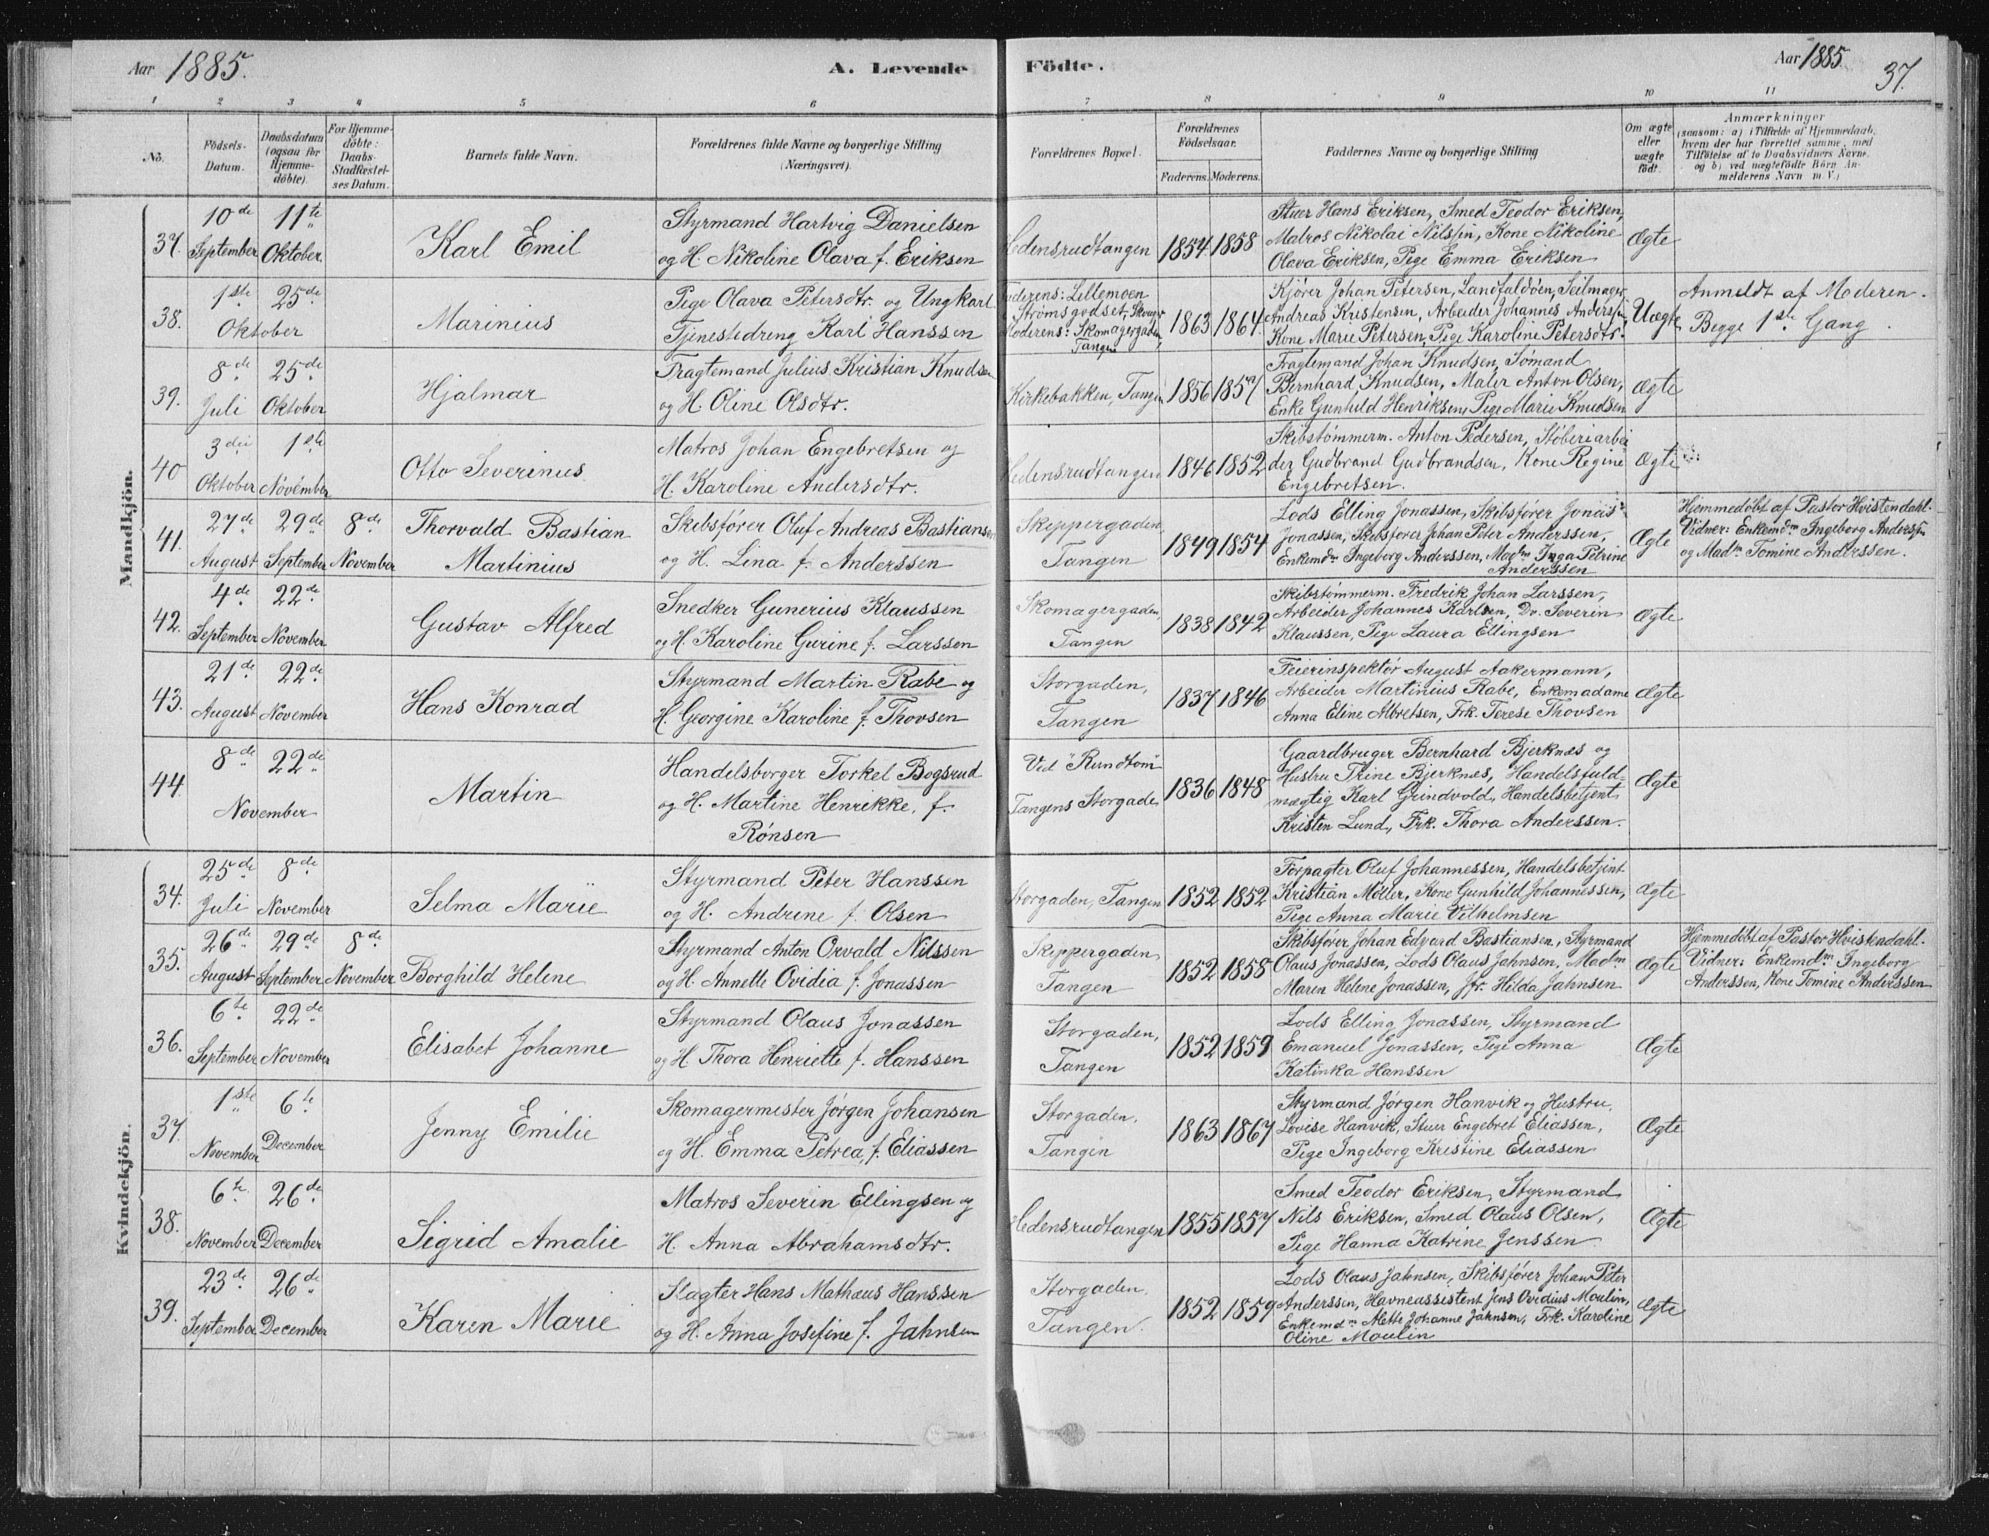 Aar 1885.
A. Levende Födte.
Aar 1885.
37.
1 2 3 4 5 6 7 8 9 10 11
No.
Födsels-Datum.
Daabsdatum (ogsaa for Hjemme-döbte).
For Hjemme-döbte: Daabs-Stadfæstel-ses Datum.
Barnets fulde Navn.
Forældrenes fulde Navne og borgerlige Stilling (Næringsvei).
Forældrenes Bopæl.
Forældrenes Födselsaar.
Faderens. Moderens.
Faddernes Navne og borgerlige Stilling
Om ægte eller uægte födt.
Anmærkninger
(saasom: a) i Tilfælde af Hjemmedaab, hvem der har forrettet samme, med Tilföielse af to Daabsvidners Navne, og b) ved uægtefödte Börn Anmelderens Navn m. V.)
Mandkjön.
37. 10de September 11te Oktober
Karl Emil
Styrmand Hartvig Danielsen
og H. Nikoline Olava f. Eriksen
Hedensrudtangen 1854 1858
Stuer Hans Eriksen, Smed Teodor Eriksen,
Matros Nikolai Nilsen, Kone Nikoline
Olava Eriksen, Pige Emma Eriksen
Ægte
38. 1ste 25de Oktober
Marinius
Pige Olava Petersdtr. og Ungkarl
Tjenestedreng Karl Hanssen
Faderens: Lillemoen
Strømsgodset, Skoger
Moderens: Skomagergaden,
Tangen
1863 1864
Kjører Johan Petersen, Landfaldøen, Seilmager
Andreas Kristensen, Arbeider Johannes Andersen,
Kone Marie Petersen, Pige Karoline Petersdtr.
Uægte
Anmeldt af Moderen.
Begge 1ste Gang.
39. 8de Juli 25de Oktober
Hjalmar
Fragtemand Julius Kristian Knudsen
og H. Oline Olsdtr.
Kirkebakken, Tangen 1856 1857
Fragtemand Johan Knudsen, Sømand
Bernhard Knudsen, Maler Anton Olsen,
Enke Gunhild Henriksen, Pige Marie Knudsen
Ægte
40 3die Oktober 1ste November
Otto Severinus
Matros Johan Engebretsen og
H. Karoline Andersdtr.
Hedensrudtangen 1846 1852
Skibstømmerm. Anton Pedersen, Støberiarbei
der Gudbrand Gudbrandsen, Kone Regine
Engebretsen.
Ægte
41. 27de August 29de September 8de November
Thorvald Bastian
Martinius
Skibsfører Oluf Andreas Bastiansen
og H. Lina f. Anderssen
Skippergaden,
Tangen
1849 1854
Lods Elling Jonassen, Skibsfører Jonas
Jonassen, Skibsfører Johan Peter Anderssen,
Enkemdm Ingeborg Anderssen, Madm Inga Petrine
Anderssen
Ægte
Hjemmedøbt af Pastor Hvistendahl.
Vidner: Enkemdm Ingeborg Andersen
og Madm Tomine Anderssen.
42. 4de September 22de November
Gustav Alfred
Snedker Gunerius Klaussen
og H. Karoline Gurine f. Larssen
Skomagergaden,
Tangen
1838 1842
Skibstømmerm. Fredrik Johan Larssen,
Arbeider Johannes Karlsen, Do. Severin
Klaussen, Pige Laura Ellingsen
Ægte
43. 21de August 22de November
Hans Konrad
Styrmand Martin Rabe og
H. Georgine Karoline f. Thovsen
Storgaden,
Tangen
1837 1846
Feierinspektør August Aakermann,
Arbeider Martinius Rabe, Enkemadame
Anna Eline Albretsen, Frk. Terese Thovsen
Ægte
44. 8de 22de November
Martin
Handelsborger Torkel Bogsrud
og H. Martine Henrikke, f.
Rønsen
Ved "Rundtom"
Tangens Storgade
1836 1848
Gaardbruger Bernhard Bjerknæs og
Hustru Trine Bjerknæs, Handelsfuld-
mægtig Karl Grindvold, Handelsbetjent
Kristen Lund, Frk. Thora Anderssen.
Ægte
Kvindekjön.
34. 25de Juli 8de November
Selma Marie
Styrmand Peter Hanssen
og H. Andrine f. Olsen
Storgaden, Tangen 1852 1852
Forpagter Oluf Johannessen, Handelsbetjent
Kristian Møller, Kone Gunhild Johannessen,
Pige Anna Marie Vilhelmsen
Ægte
35. 26de August 29de September 8de November
Borghild Helene
Styrmand Anton Orvald Nilssen
og H. Annette Ovidia f. Jonassen
Skippergaden,
Tangen
1852 1858
Skibsfører Johan Edvard Bastiansen, Styrmand
Olaus Jonassen, Lods Olaus Jahnsen, Madm
Maren Helene Jonassen, Jfr. Hilda Jahnsen
Ægte
Hjemmedøbt af Pastor Hvistendahl.
Vidner: Enkemdm Ingeborg
Anderssen, Kone Tomine Anderssen
36. 6te September 22de November
Elisabet Johanne
Styrmand Olaus Jonassen
og H. Thora Henriette f. Hanssen
Storgaden,
Tangen
1852 1859
Lods Elling Jonassen, Styrmand
Emanuel Jonassen, Pige Anna
Katinka Hanssen
Ægte
37. 1ste November 6te December
Jenny Emilie
Skomagermester Jørgen Johansen
og H. Emma Petrea, f. Eliassen
Storgaden,
Tangen
1863 1867
Styrmand Jørgen Hanvik og Hustru
Lovise Hanvik, Stuer Engebret Eliassen,
Pige Ingeborg Kristine Eliassen
Ægte
38. 6te November 26de December
Sigrid Amalie
Matros Severin Ellingsen og
H. Anna Abrahamsdtr.
Hedensrudtangen 1855 1857
Smed Teodor Eriksen, Styrmand
Nils Eriksen, Smed Olaus Olsen,
Pige Hanna Katrine Jenssen
Ægte
39. 23de September 26de December
Karen Marie
Slagter Hans Mathæus Hanssen
og H. Anna Josefine f. Jahnsen
Storgaden,
Tangen.
1852 1859
Lods Olaus Jahnsen, Skibsfører Johan Peter
Anderssen, Havneassistent Jens Ovidius Moulin,
Enkemdm Mette Johanne Jahnsen, Frk. Karoline
Oline Moulin
Ægte